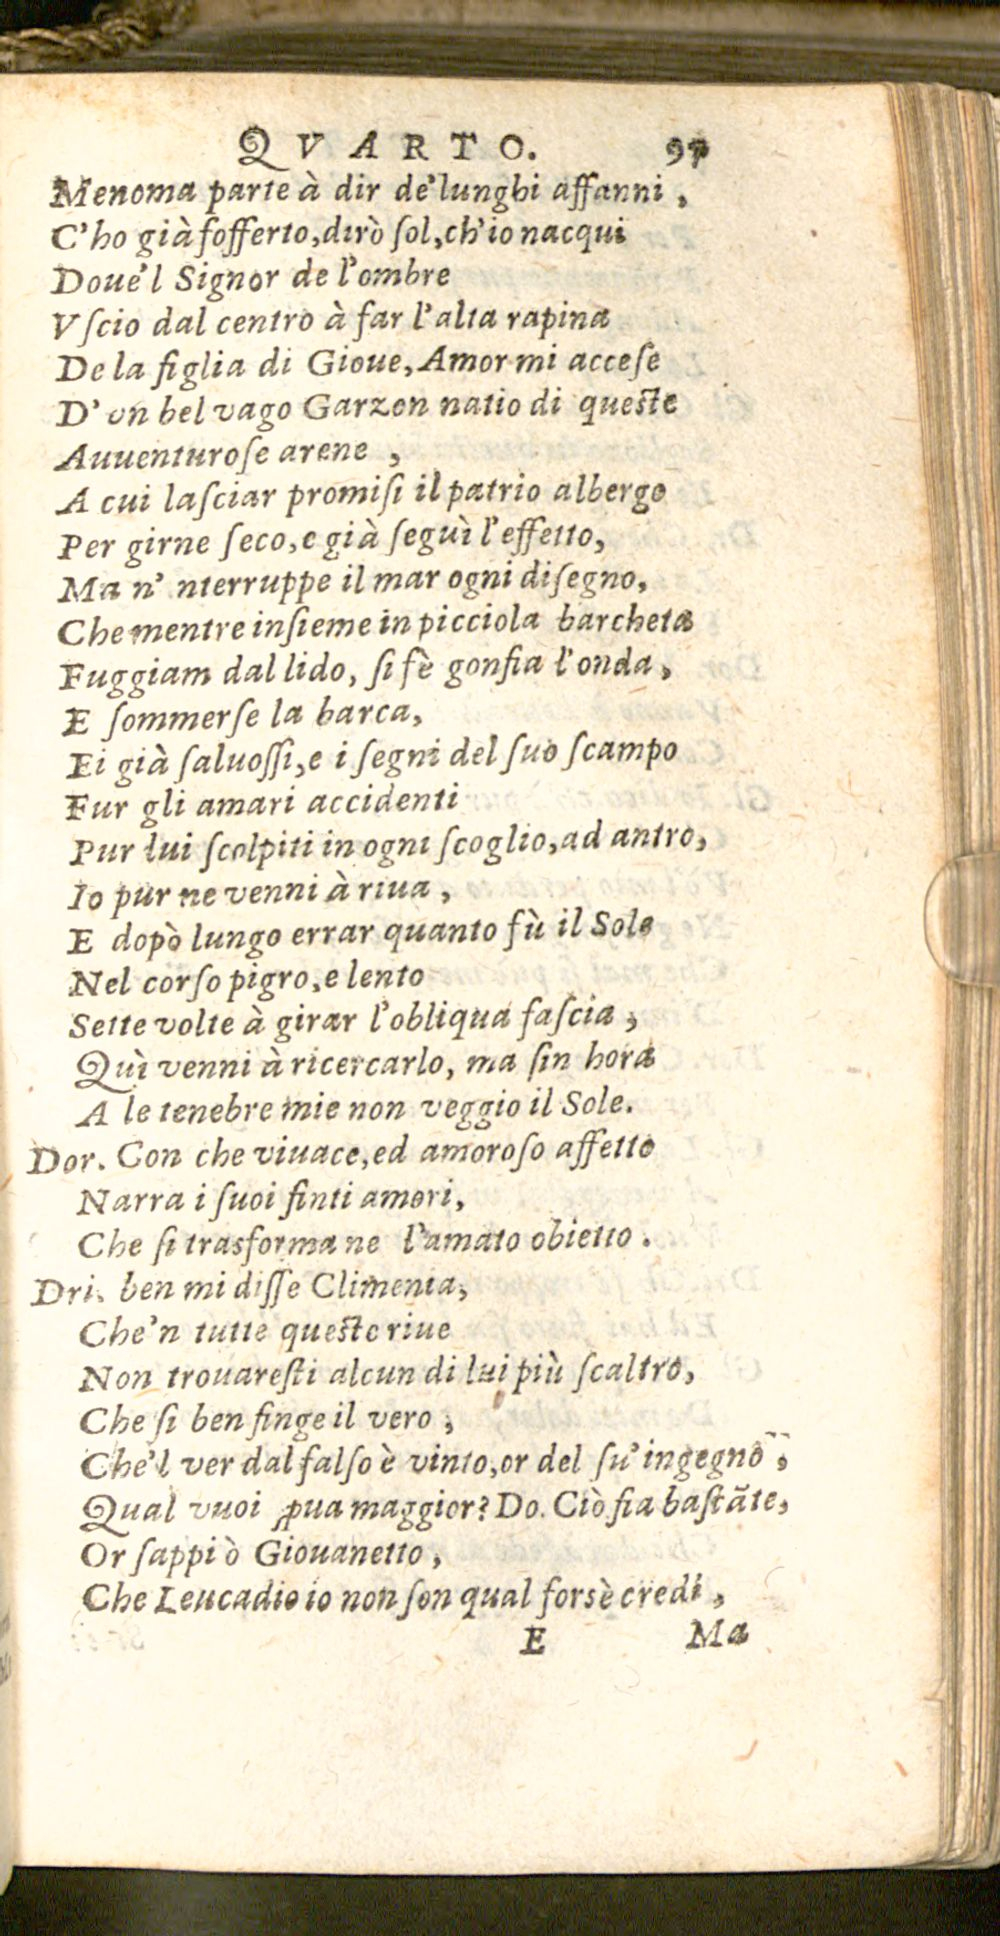 QVARTO. 97
Menoma parte à dir de'lunghi affanni,
C'ho già ſofferto,dirò ſol,ch'io nacqui
Doue'l Signor de l'ombre
Vſcio dal centro à far l'alta rapina
De la figlia di Gioue,Amor mi acceſe
D'vn bel vago Garzon natio di queſte
Auuenturoſe arene,
A cui laſciar promiſi il patrio albergo
Per girne ſeco,e già ſeguì l'effetto,
Ma n'nterruppe il mar ogni diſegno,
Che mentre inſieme in picciola barcheta
Fuggiam dal lido, ſi fè gonfia l'onda,
E ſommerſe la barca,
Ei già ſaluoſſi,e i ſegni del ſuo ſcampo
Fur gli amari accidenti
Pur lui ſcolpiti in ogni ſcoglio,ad antro,
Io pur ne venni à riua,
E dopò lungo errar quanto fù il Sole
Nel corſo pigro,e lento
Sette volte à girar l'obliqua faſcia,
Quì venni à ricercarlo, ma ſin hora
A le tenebre mie non veggio il Sole.
Dor. Con che viuace,ed amoroſo affetto
Narra i ſuoi finti amori,
Che ſi trasforma ne l'amato obietto.
Dri. ben mi diſſe Climenta,
Che'n tutte queſte riue
Non trouareſti alcun di lui più ſcaltro,
Che ſi ben finge il vero,
Che'l ver dal falſo è vinto,or del ſu'ingegno,
Qual vuoi ꝓua maggior? Do. Ciò fia baſtãte,
Or ſappi ò Giouanetto,
Che Leucadio io non ſon qual forsè credi,
E Ma